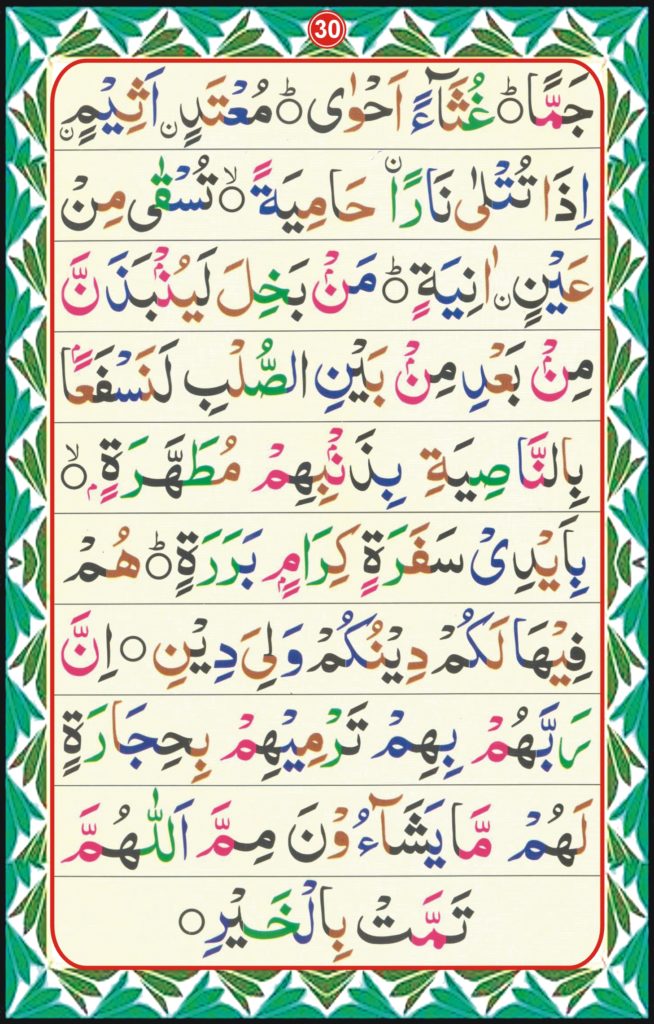 30
جَمًّا ؕ غُثَآءً اَحْوٰى ؕ مُعْتَدٍ ۙن اَثِيْمٍ ۙن
اِذَا تُتْلٰى نَارًا ۙن حَامِيَةً ۙ تُسْقٰى مِنْ
عَيْنٍ ۙن اٰنِيَةٍ ؕ مَنْۢ بَخِلَ لَيُنْۢبَذَنَّ
مِنْۢ بَعْدِ مِنْۢ بَيْنِ الصُّلْبِ لَنَسْفَعًاۢ
بِالنَّاصِيَةِ بِذَنْۢبِهِمْ مُطَهَّرَةٍۭ ۙ
بِاَيْدِىْ سَفَرَةٍ كِرَامٍۭ بَرَرَةٍ ؕ هُمْ
فِيْهَا لَكُمْ دِيْنُكُمْ وَلِىَ دِيْنِ ○ اِنَّ
رَبَّهُمْ بِهِمْ تَرْمِيْهِمْ بِحِجَارَةٍ
لَهُمْ مَّا يَشَآءُوْنَ مِمَّ اَللّٰهُمَّ
تَمَّتْ بِالْخَيْرِ ○